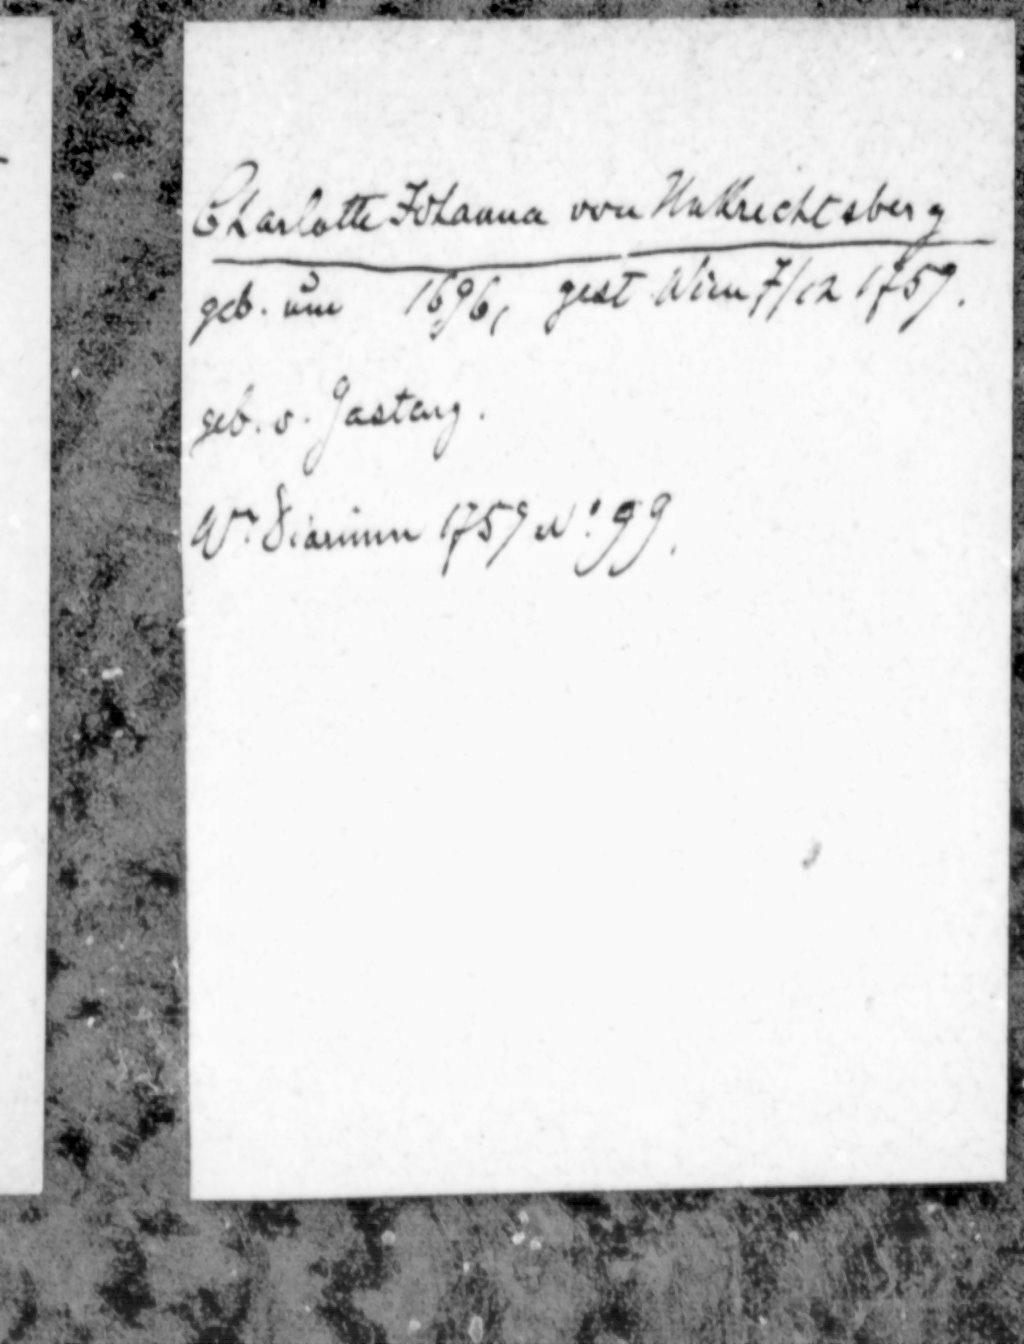 Charlotte Johanna von Unkrechtsberg
geb. um 1696, gest Wien 7/12 1759.
geb. v. Gastany.
Wr. Diarium 1759 No. 99.